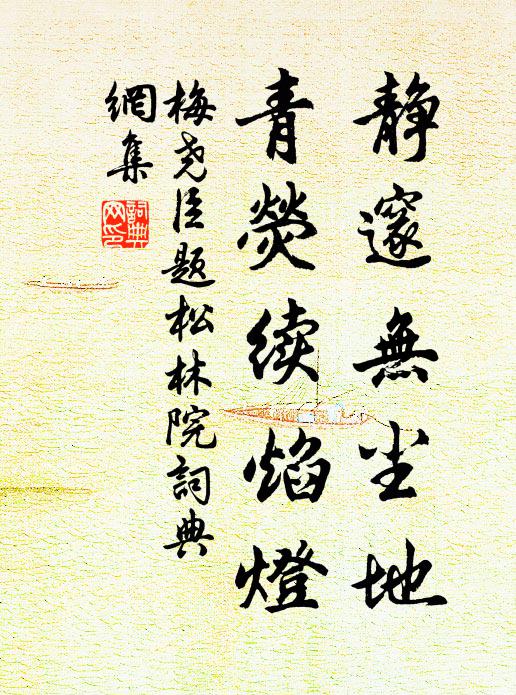 静邃無尘地
青熒续焰燈
梅尧臣题松林院詞典
網集
詞典
网印